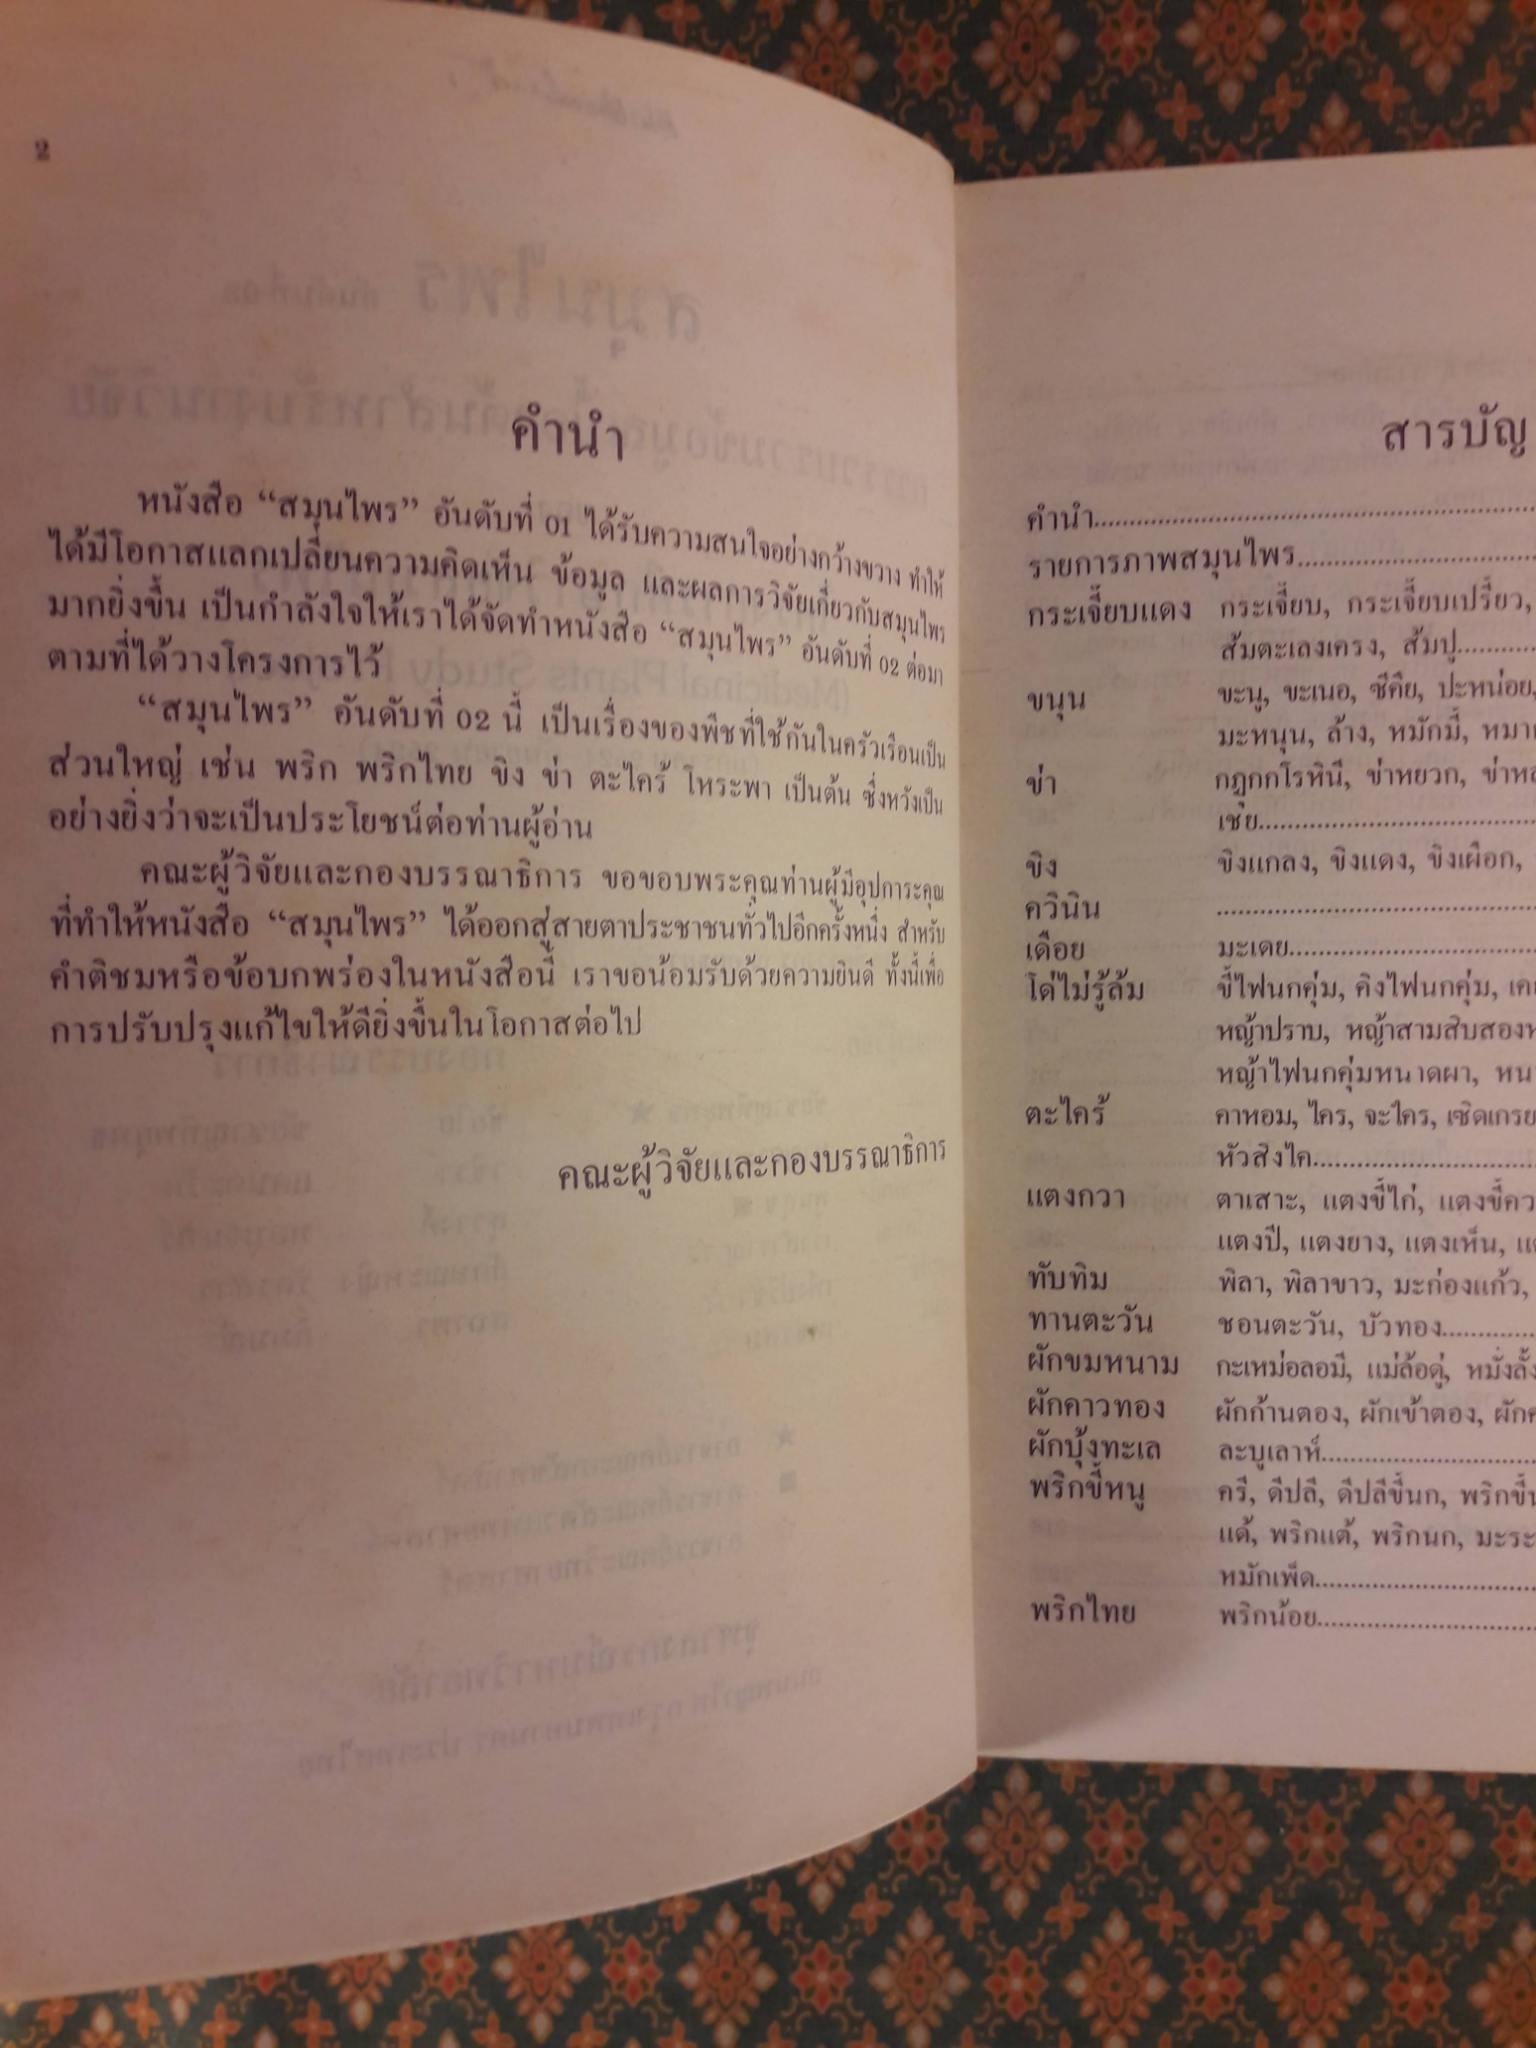 2
คำนำ
หนังสือ “สมุนไพร” อันดับที่ 01 ได้รับความสนใจอย่างกว้างขวาง ทำให้
ได้มีโอกาสแลกเปลี่ยนความคิดเห็น ข้อมูล และผลการวิจัยเกี่ยวกับสมุนไพร
มากยิ่งขึ้น เป็นกำลังใจให้เราได้จัดทำหนังสือ “สมุนไพร” อันดับที่ 02 ต่อมา
ตามที่ได้วางโครงการไว้
“สมุนไพร” อันดับที่ 02 นี้ เป็นเรื่องของพืชที่ใช้กันในครัวเรือนเป็น
ส่วนใหญ่ เช่น พริก พริกไทย ขิง ข่า ตะไคร้ โหระพา เป็นต้น ซึ่งหวังเป็น
อย่างยิ่งว่าจะเป็นประโยชน์ต่อท่านผู้อ่าน
คณะผู้วิจัยและกองบรรณาธิการ ขอขอบพระคุณท่านผู้มีอุปการะคุณ
ที่ทำให้หนังสือ “สมุนไพร” ได้ออกสู่สายตาประชาชนทั่วไปอีกครั้งหนึ่ง สำหรับ
คำติชมหรือข้อบกพร่องในหนังสือนี้ เราขอน้อมรับด้วยความยินดี ทั้งนี้เพื่อ
การปรับปรุงแก้ไขให้ดียิ่งขึ้นในโอกาสต่อไป
คณะผู้วิจัยและกองบรรณาธิการ
สารบัญ
คำนำ
รายการภาพสมุนไพร
กระเจี๊ยบแดง กระเจี๊ยบ, กระเจี๊ยบเปรี้ยว,
ส้มตะเลงเครง, ส้มปู
ขนุน ขะนู, ขะเนอ, ซีคึย, ปะหน่อย,
มะหนุน, ล้าง, หมักมี้,
ข่า กฎุกกโรหินี, ข่าหยวก,
เชย
ขิง ขิงแกลง, ขิงแดง, ขิงเผือก,
ควินิน
เดือย มะเดย
โด่ไม่รู้ล้ม ขี้ไฟนกคุ่ม, คิงไฟนกคุ่ม,
หญ้าปราบ,
หญ้าไฟนกคุ่มหนาดผา,
ตะไคร้ คาหอม, ไคร, จะไคร, เชิดเกรย
หัวสิงไค
แตงกวา ตาเสาะ, แตงขี้ไก่,
แตงปี, แตงยาง, แตงเห็น,
ทับทิม พิลา, พิลาขาว, มะก่องแก้ว,
ทานตะวัน ชอนตะวัน, บัวทอง
ผักขมหนาม กะเหม่อลอมี, แม่ล้อดู่,
ผักคาวทอง ผักก้านตอง, ผักเข้าตอง,
ผักบุ้งทะเล ละบูเลาห์
พริกขี้หนู ครี, ดีปลี, ดีปลีขี้นก,
แด้, พริกแต้, พริกนก,
หมักเพ็ด
พริกไทย พริกน้อย